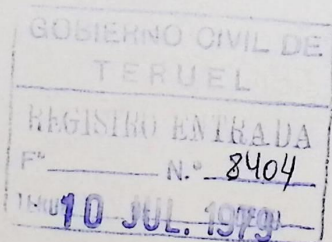 GOBIERNO CIVIL DE
TERUEL
REGISTRO ENTRADA
F.º N.º 8404
10 JUL. 1979